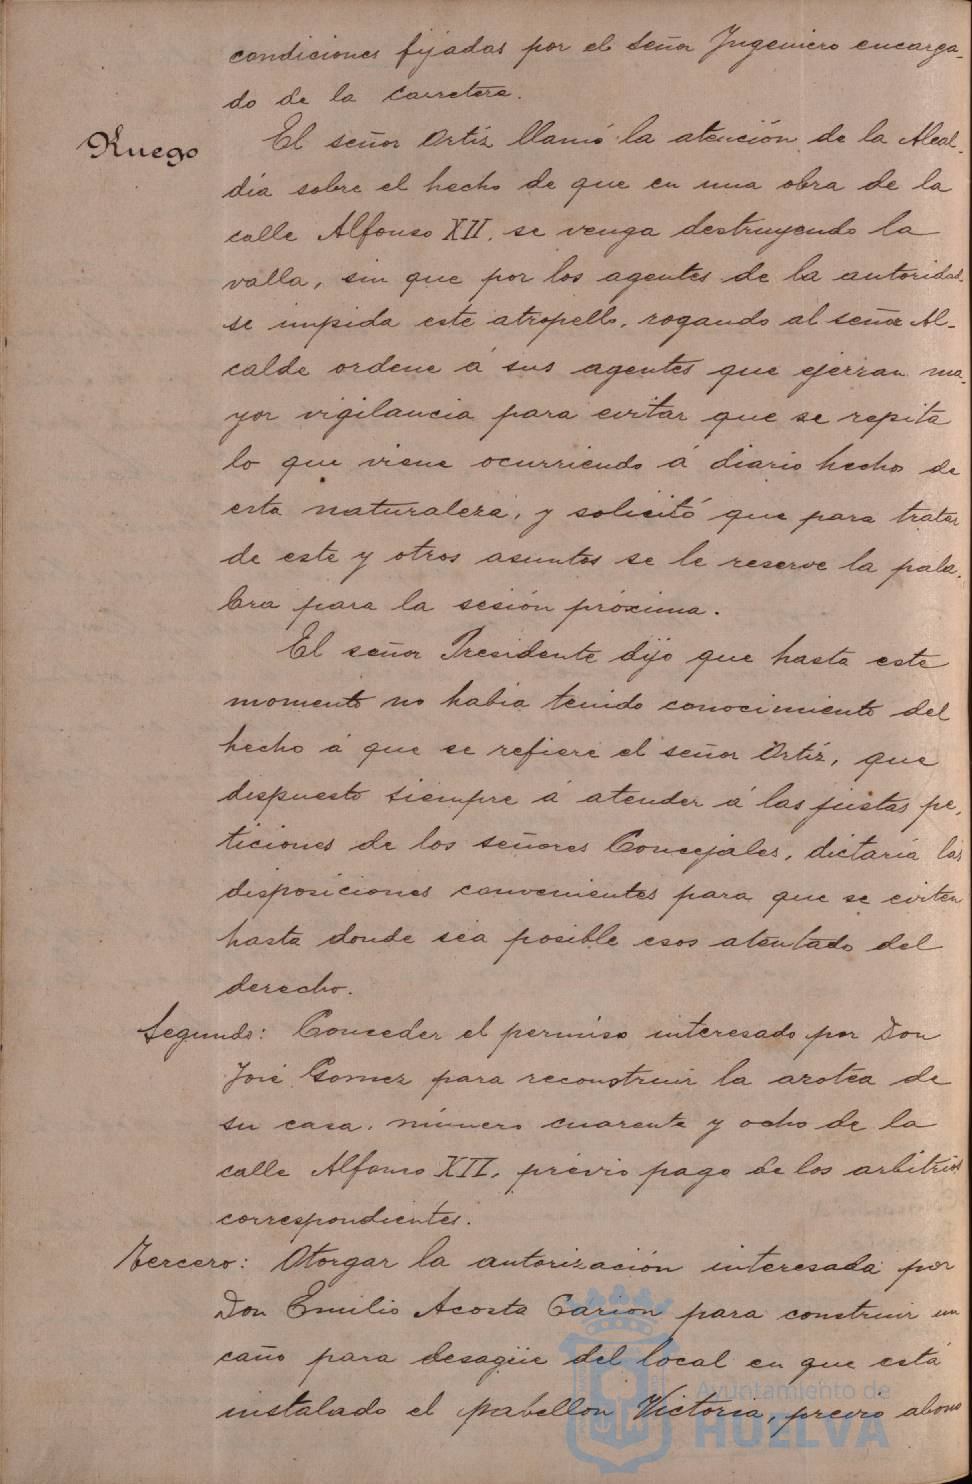 condiciones fijadas por el señor Ingeniero encarga-
do de la carretera.
Ruego
El señor Ortíz llamó la atención de la Alcal-
día sobre el hecho de que en una obra de la
calle Alfonso XII. se venga destruyendo la
valla, sin que por los agentes de la autoridad
se impida este atropello, rogando al señor Al-
calde ordene á sus agentes que ejerzan ma-
yor vigilancia para evitar que se repita
lo que viene ocurriendo á diario hechos de
esta naturaleza, y solicitó que para tratar
de este y otros asuntos se le reserve la pala-
bra para la sesión próxima.
El señor Presidente dijo que hasta este
momento no habia tenido conocimiento del
hecho á que se refiere el señor Ortíz, que
dispuesto siempre á atender á las justas pe-
ticiones de los señores Concejales, dictaría las
disposiciones convenientes para que se eviten
hasta donde sea posible esos atentado del
derecho.
Segundo: Conceder el permiso interesado por Don
José Gomez para reconstruir la azotea de
su casa, número cuarenta y ocho de la
calle Alfonso XII, prévio pago de los arbitrios
correspondientes.
Tercero: Otorgar la autorización interesada por
Don Emilio Acosta Carion para construir un
caño para desagüe del local en que está
instalado el pabellon Victoria, previo abono
Ayuntamiento de
HUELVA